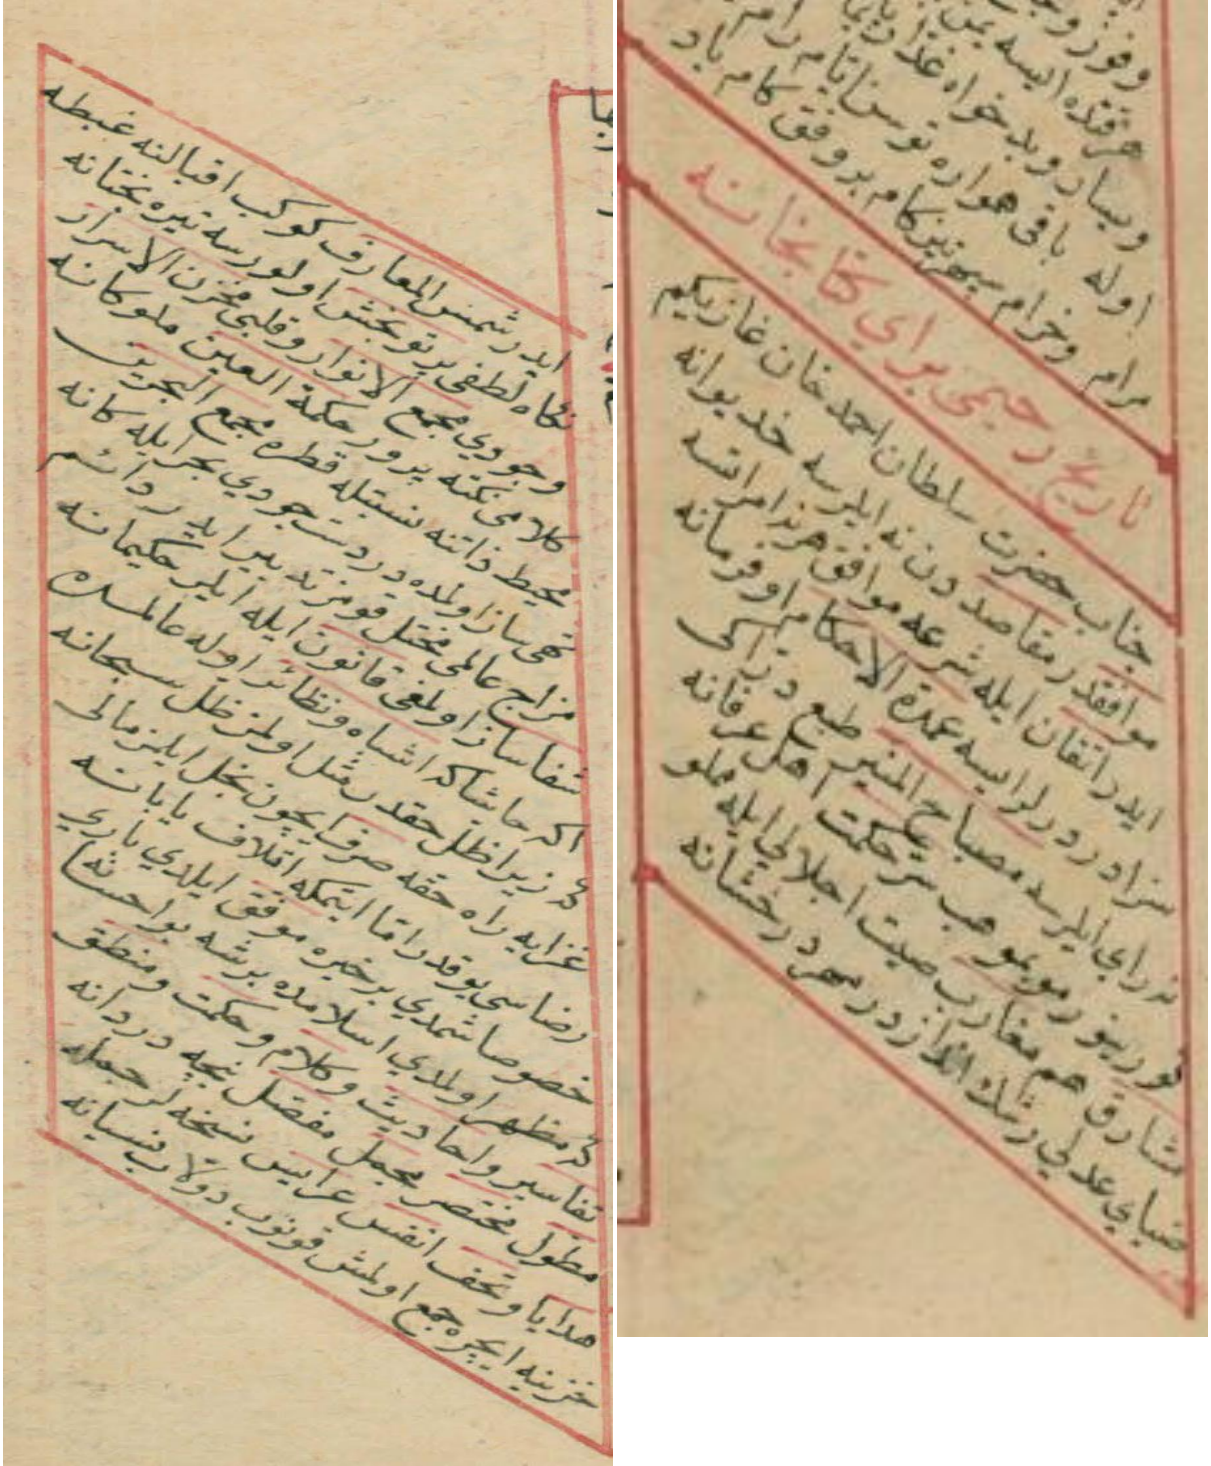 هر قنده ايسه يمن
ويسار و بدخواه
اوله باقى همواره توسن ايام رام
مرام وخرام سپهر تيزكام بر وفق كام باد
تاريخ رحيمى براي كتابخانه
جناب حضرت سلطان احمد خان غازيكم
موافقدر مقاصد دن نه ايلرسه خديوانه
ايدر اتقان ايله شرعه موافق هر نه امر اتسه
سزادر درلر ايسه عمدة الاحكام او فرمانه
نه راي ايلرسه مصباح المنير طبع دراكى
موبمو هب سر حكمت اهل عرفانه
مشارق هم مغارب صيت اجلالي ايله مملو
ضياي عدلي رشك انداز در مهر درخشانه
ايدر شمس المعارف كوكب اقبالنه غبطه
نكاه لطفى پرتو بخش اولورسه تيره بختانه
وجودي مجمع الانوار و قلبى مخزن الاسرار
كلامى نكته پرور حكمة العين ملوكانه
محيط ذاتنه نسبتله قطره مجمع البحرين
تهى ساز اولمده در دست جودي بحر ايله كانه
مزاج عالمى مختل قومز تدبير ايدر دائم
شفا ساز اولمغى قانون ايله ايلر حكيمانه
اكر حاشا كه اشباه و نظائر اوله عالمده
كه زيرا ظل حقدر مثل اولمز ظل سبحانه
غزايه راه حقه صرف ايچون بخل ايلمز مالى
رضاسى يوقدر اما ايتمكه اتلاف يابانه
خصوصا شمدي بر خيره موفق ايلدي باري
كه مظهر اولمدي اسلامده بر شه بو احسانه
تفاسير و احاديث و كلام و حكمت و منطق
مطول مختصر مجمل مفصل نيچه دردانه
هدايا و تحف انفس عرايس نسخه لر جمله
خزينه ايچره جمع اولمش قونوب دولاب نسيانه